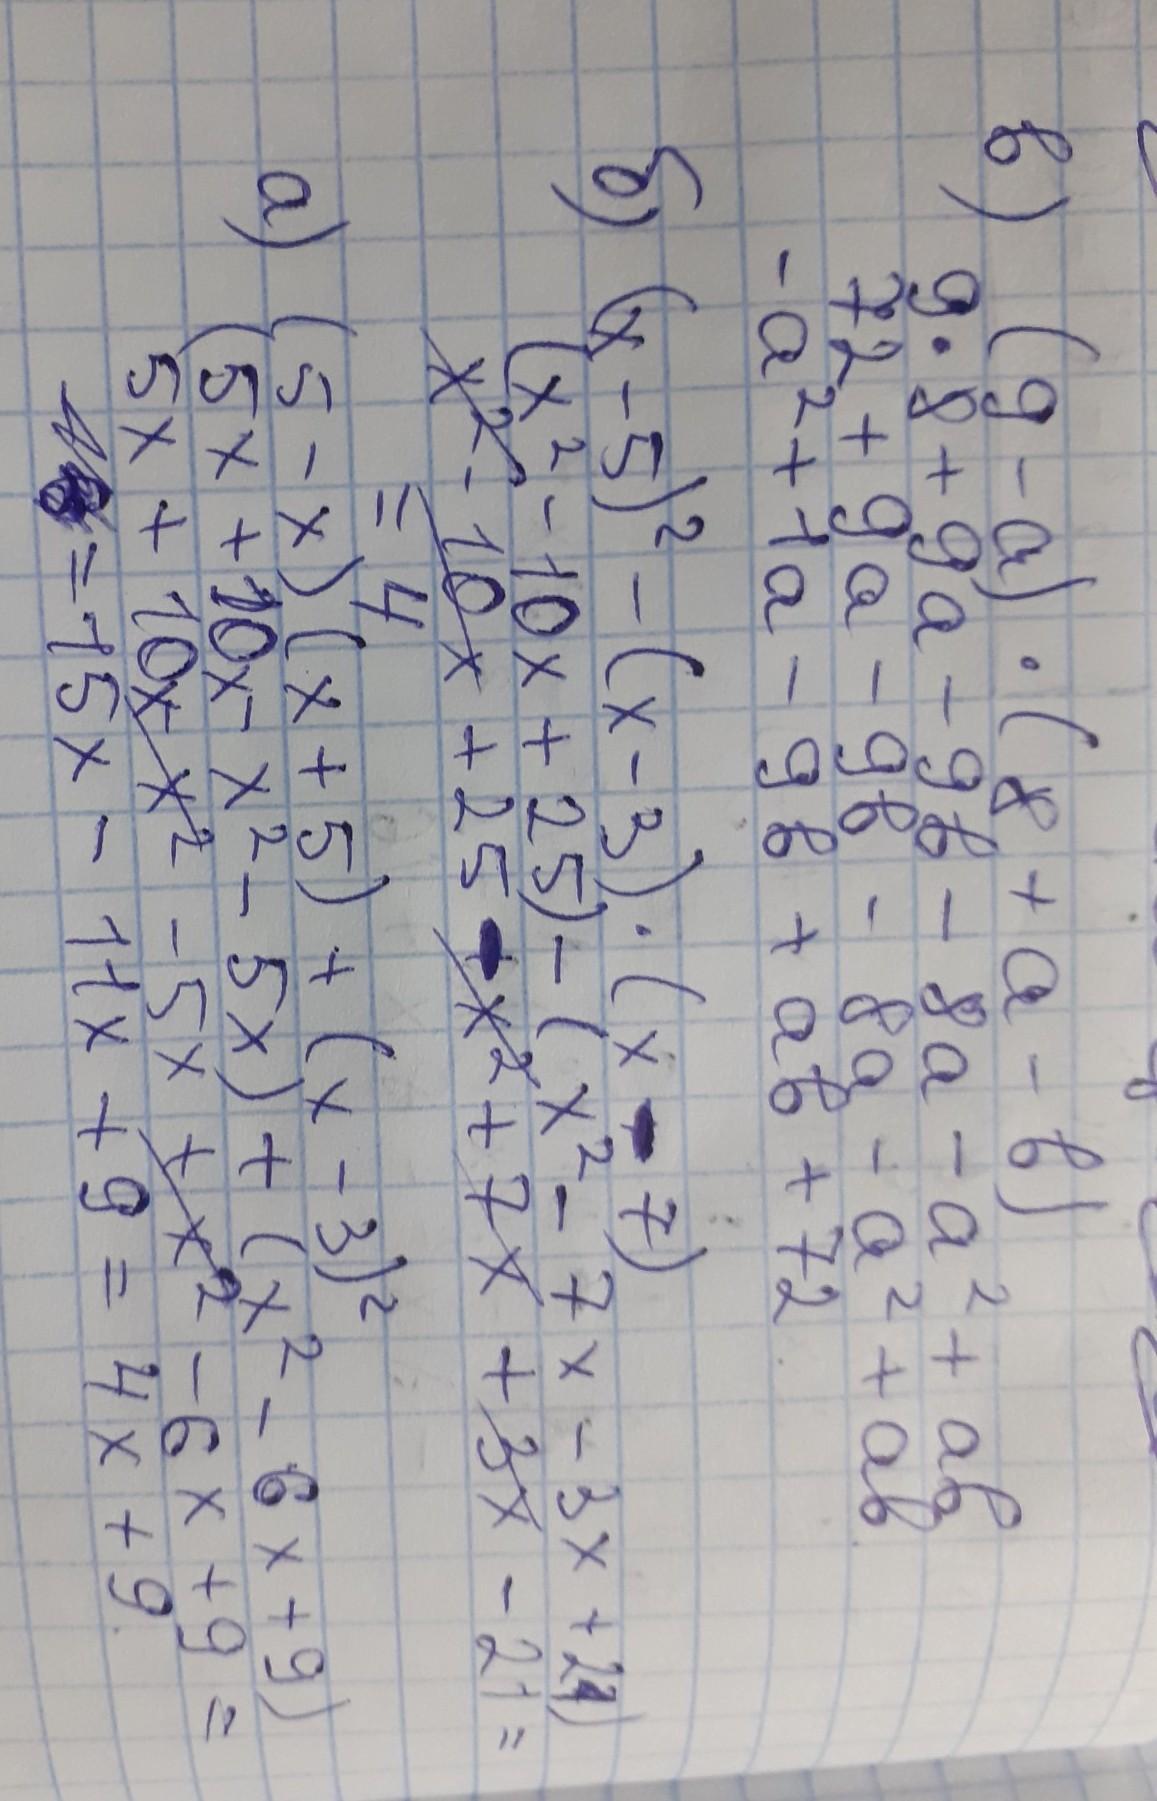 в) (9 - a) · (8 + a - в)
9·8 + 9a - 9в - 8a - a² + aв
72 + 9a - 9в - 8a - a² + aв
-a² + 1a - 9в + aв + 72
б) (x - 5)² - (x - 3) · (x - 7)
(x² - 10x + 25) - (x² - 7x - 3x + 21)
x² - 10x + 25 - x² + 7x + 3x - 21 =
= 4
а) (5 - x)(x + 5) + (x - 3)²
(5x + 10x - x² - 5x) + (x² - 6x + 9)
5x + 10x - x² - 5x + x² - 6x + 9 =
= 15x - 11x + 9 = 4x + 9